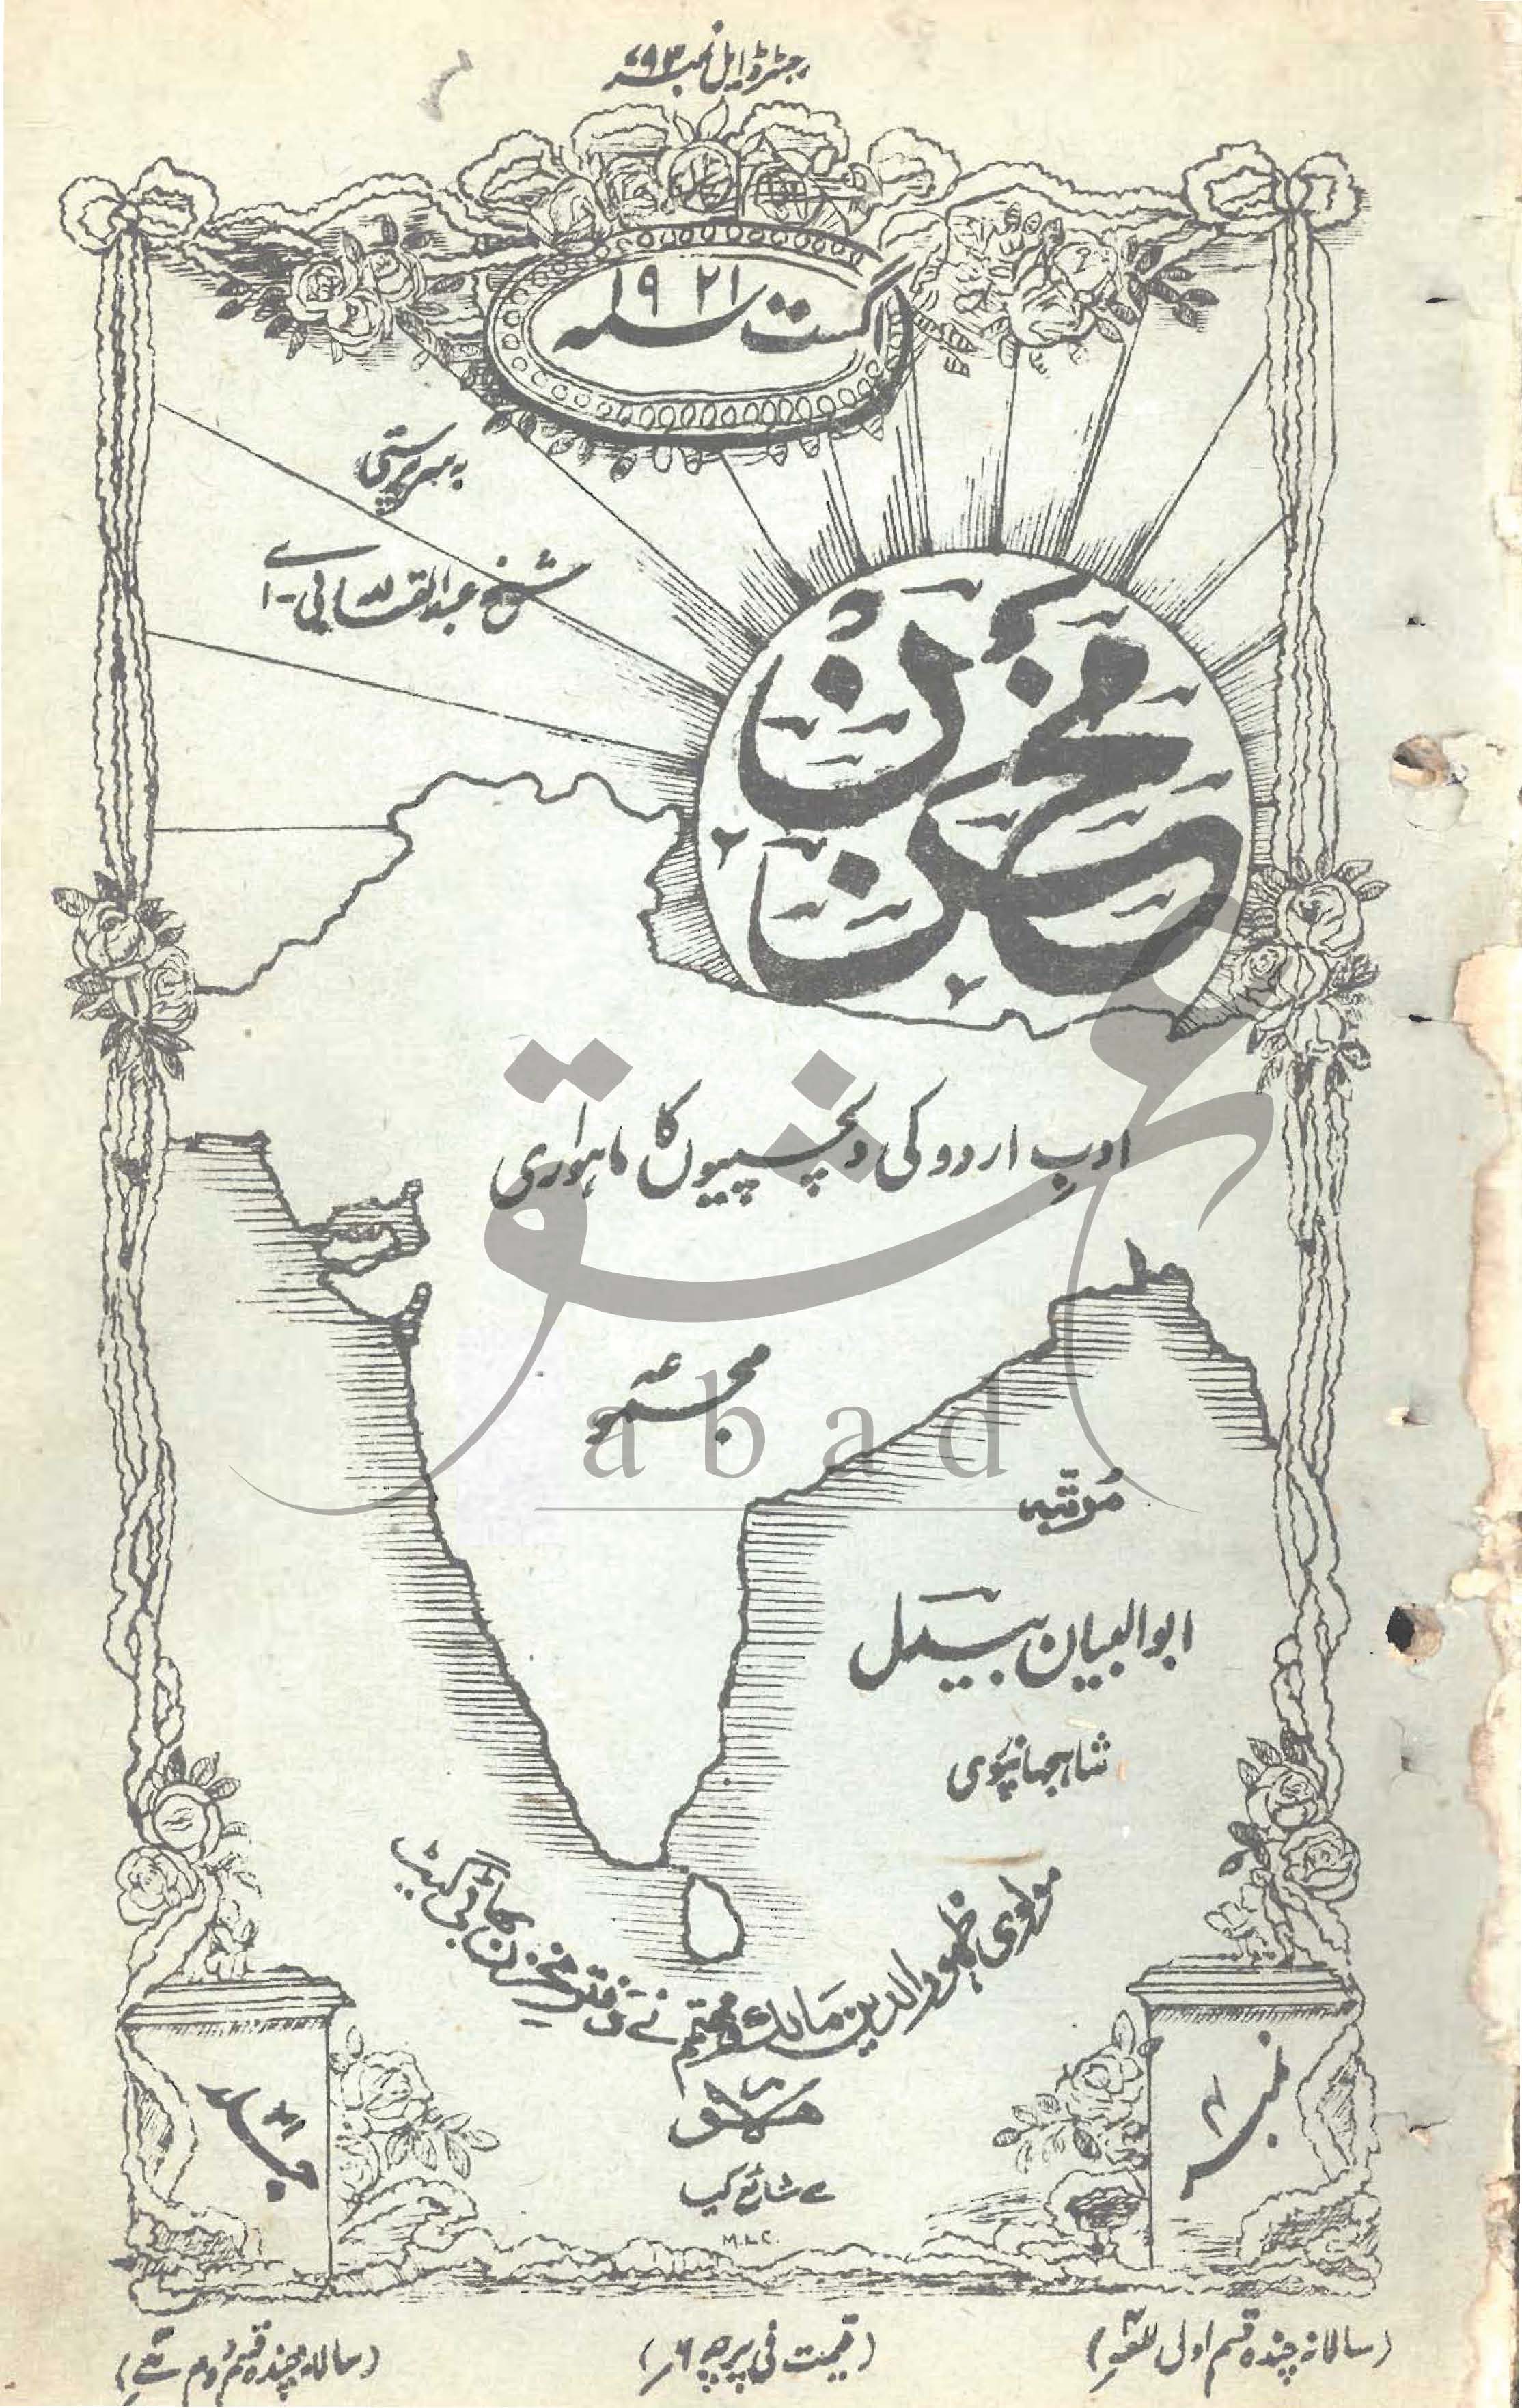 رجسٹرڈ ایل نمبر ۶۹۳
اگست سنہ ۱۹۲۱
بہ سرپرستی
شیخ عبدالقادر بی-اے
مخزن
ادبِ اردو کی دلچسپیوں کا ماہواری
مجموعہ
مُرتّبہ
ابوالبیان بیدل
شاہجہانپوری
مولوی ظہور الدین مالک و مہتمم نے دفتر مخزن بھاٹی گیٹ
لاہور
سے شائع کیا
M.L.C.
نمبر ۴
جلد ۴۱
(سالانہ چندہ قسم اول)
(قیمت فی پرچہ ۶؍)
(سالانہ چندہ قسم دوم)
عشق
abad